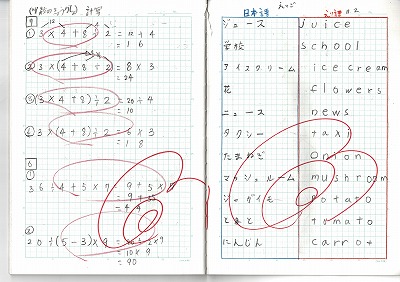 計算
9
① 3×4+8÷2 = 12+4
= 16
② 3×(4+8÷2) = 8×3
= 24
③ (3×4+8)÷2 = 20÷4
= 10
④ 3×(4+8)÷2 = 6×3
= 18
6
①
36÷4+5×7 = 9+5×7
= 9+
= 44
②
20÷(5-3)×9
= 10×9
= 90
日本語
ジュース juice
学校 school
アイスクリーム ice cream
花 flowers
ニュース news
タクシー taxi
たまねぎ Onion
マッシュルーム mushroom
ジャガイモ potato
とまと tomato
にんじん carrot